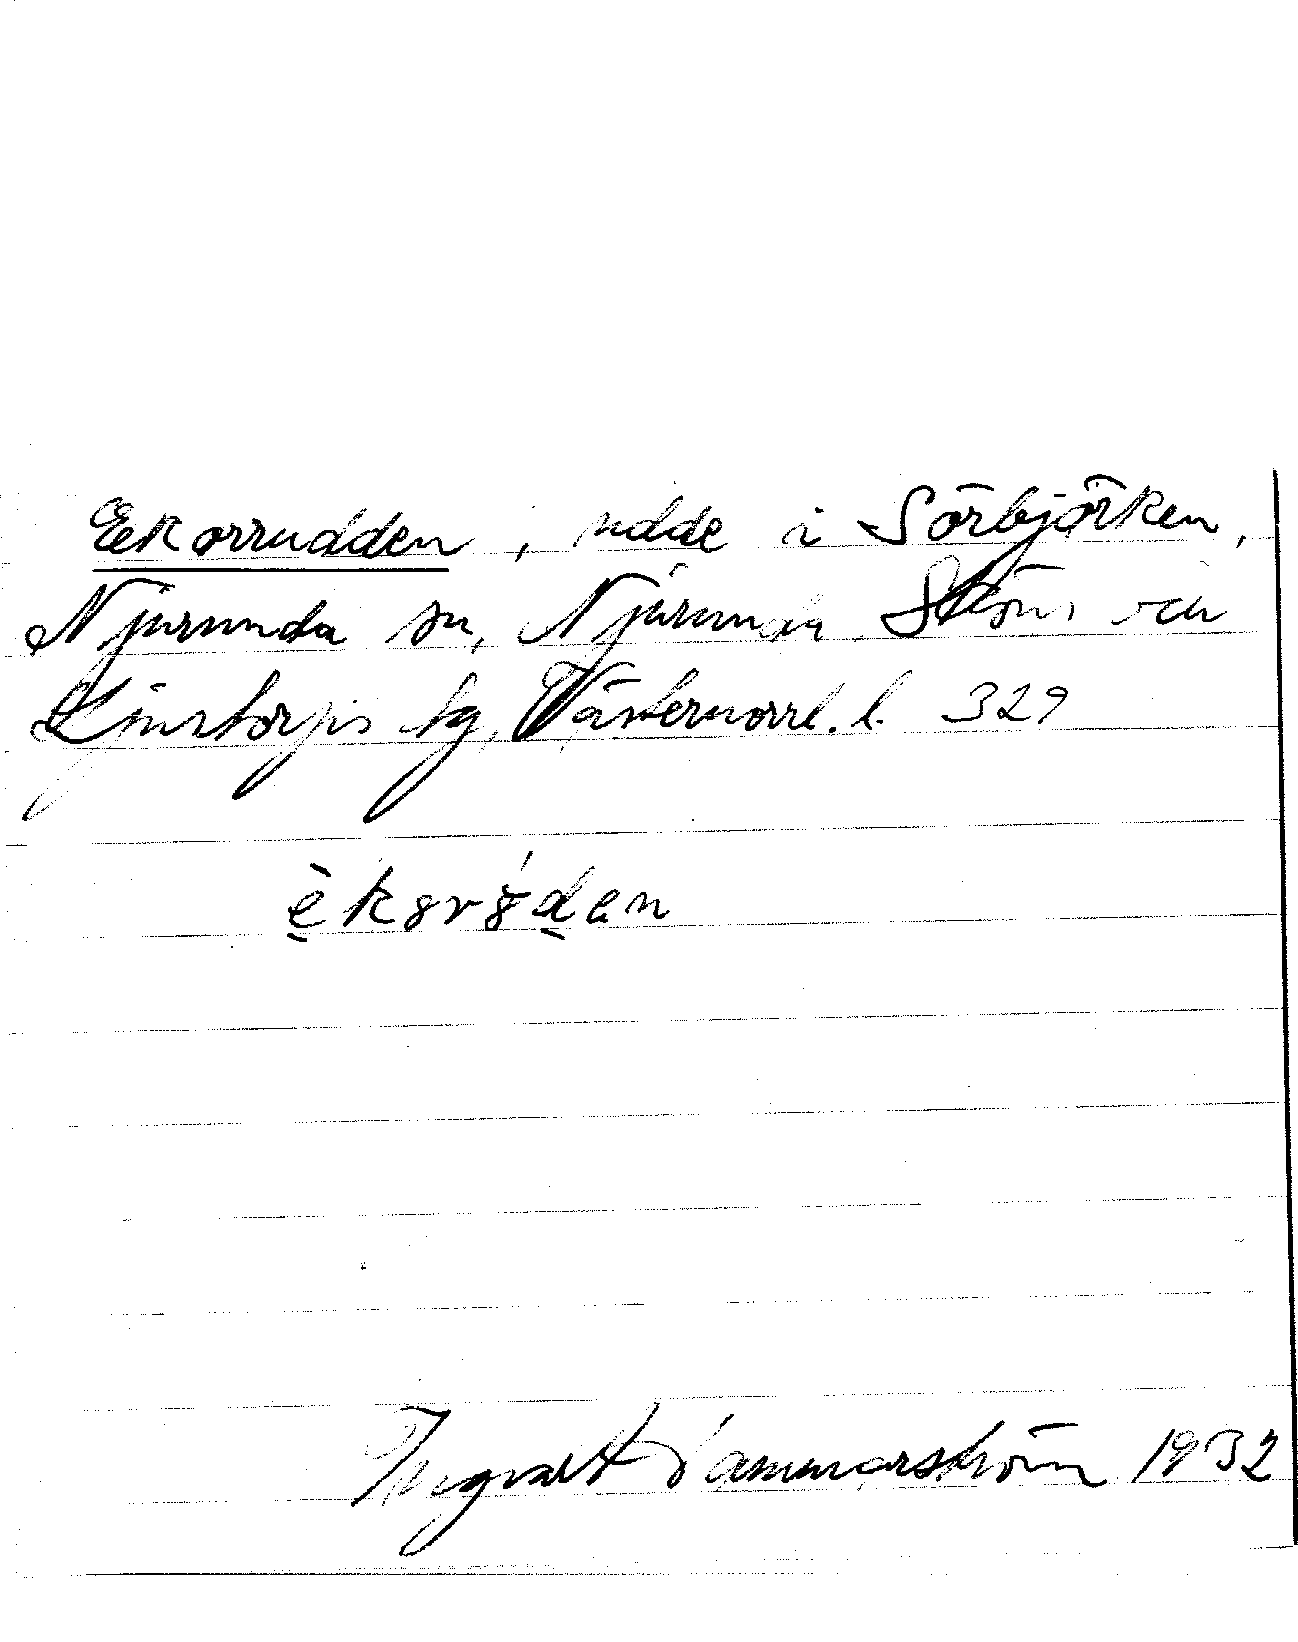 Ekorrudden, udde i Sörbjörken,
Njurunda sn, Njurunda Sköns och
Ljustorps tg, Västernorrl. l. 329
èkɤrɤ́den
Ingvalt Hammarström 1932